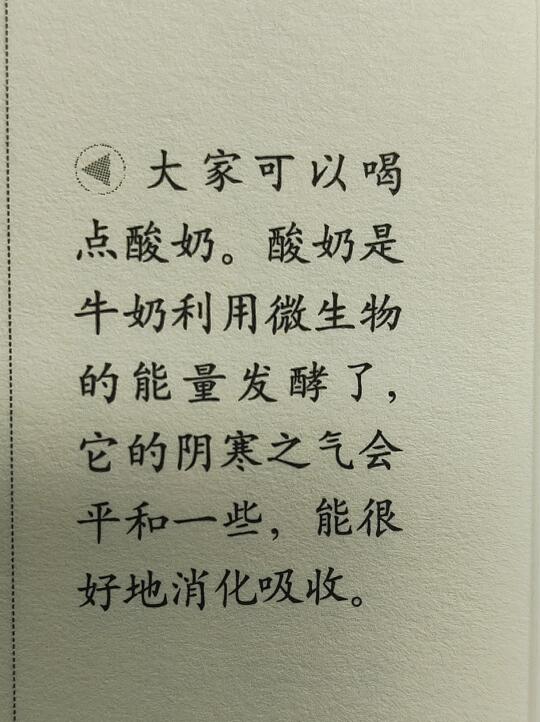 大家可以喝
点酸奶。酸奶是
牛奶利用微生物
的能量发酵了，
它的阴寒之气会
平和一些，能很
好地消化吸收。